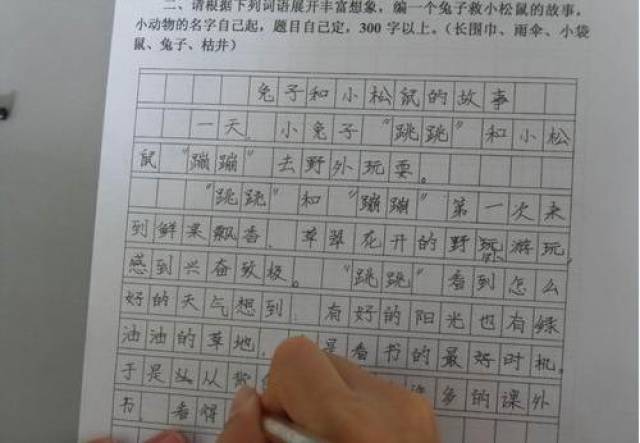 二、请根据下列词语展开丰富想象,编一个兔子救小松鼠的故事,
小动物的名字自己起,题目自己定,300字以上。(长围巾、雨伞、小袋
鼠、兔子、枯井)
兔子和小松鼠的故事
一天,小兔子“跳跳”和小松
鼠“蹦蹦”去野外玩耍。
“跳跳”和“蹦蹦”第一次来
到鲜果飘香、草翠花开的野 游玩,
感到兴奋致极。“跳跳”看到怎么
好的天气想到:有好的阳光也有绿
油油的草地, 是看书的最好时机。
于是 从 多的课外
书, 看得